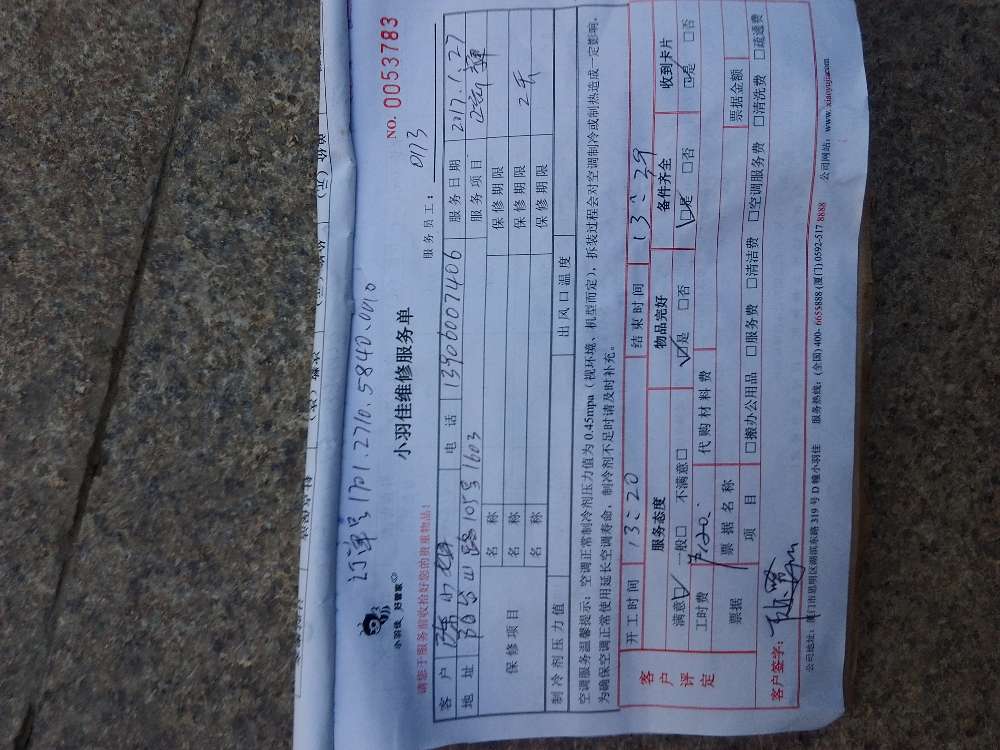 订单号1701.2710.5840.0010
小羽佳 好管家
小羽佳维修服务单
NO. 0053783
请您于服务前收拾好您的贵重物品!
服务员工: 0173
客户 电话 13900007406 服务日期 2017.1.27
地址 105号1603 服务项目
保修项目 名称 保修期限
名称 保修期限 2天
名称 保修期限
制冷剂压力值 出风口温度
空调服务温馨提示: 空调正常制冷剂压力值为0.45mpa (视环境、机型而定), 拆装过程会对空调制冷或制热造成一定影响,
为确保空调正常使用延长空调寿命, 制冷剂不足时请及时补充。
客户评定 开工时间 13:20 结束时间 13:39
服务态度 物品完好 备件齐全 收到卡片
满意☑ 一般□ 不满意□ ☑是 □否 ☑是 □否 ☑是 □否
工时费 代购材料费
票据 票据名称 票据金额
项目 □搬办公用品 □服务费 □清洁费 □空调服务费 □清洗费 □疏通费
客户签字:
公司地址: 厦门市思明区湖滨东路319号D幢小羽佳 服务热线: (全国)400-6655888 (厦门)0592-5178888 公司网站: www.xiaoyujia.com